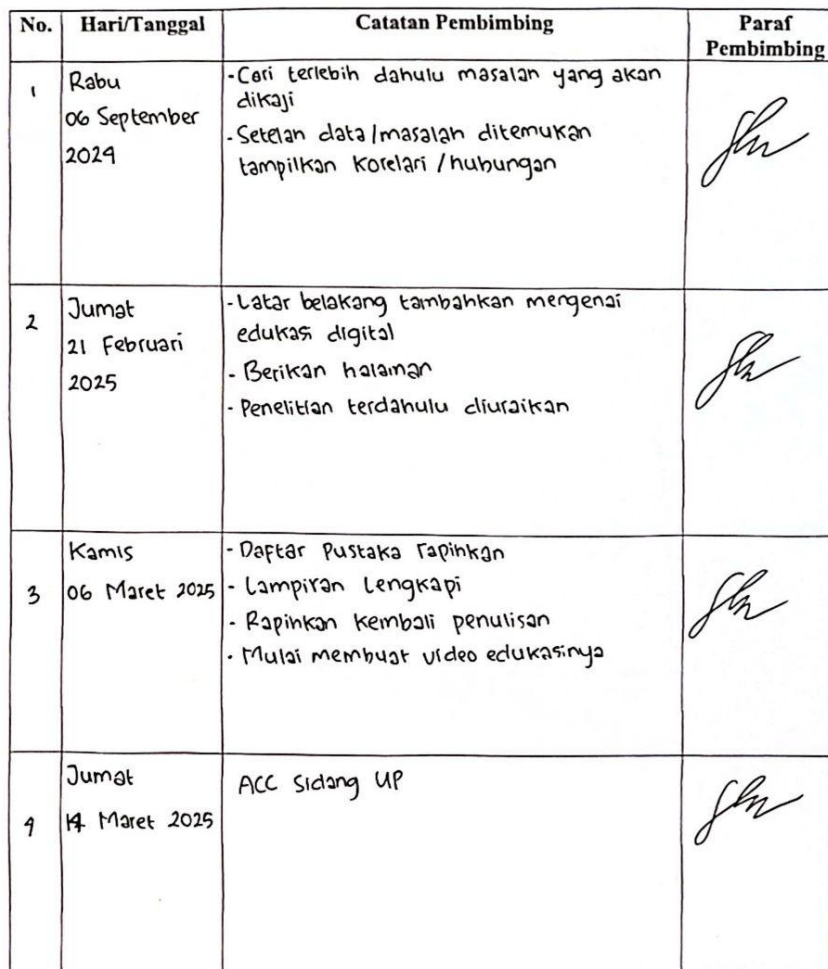 No. Hari/Tanggal Catatan Pembimbing Paraf Pembimbing
1 Rabu
06 September
2024
- Cari terlebih dahulu masalah yang akan
dikaji
- Setelah data/masalah ditemukan
tampilkan korelari / hubungan
2 Jumat
21 Februari
2025
- Latar belakang tambahkan mengenai
edukasi digital
- Berikan halaman
- Penelitian terdahulu diuraikan
3 Kamis
06 Maret 2025
- Daftar Pustaka rapihkan
- Lampiran Lengkapi
- Rapihkan kembali penulisan
- Mulai membuat video edukasinya
4 Jumat
14 Maret 2025
ACC Sidang UP